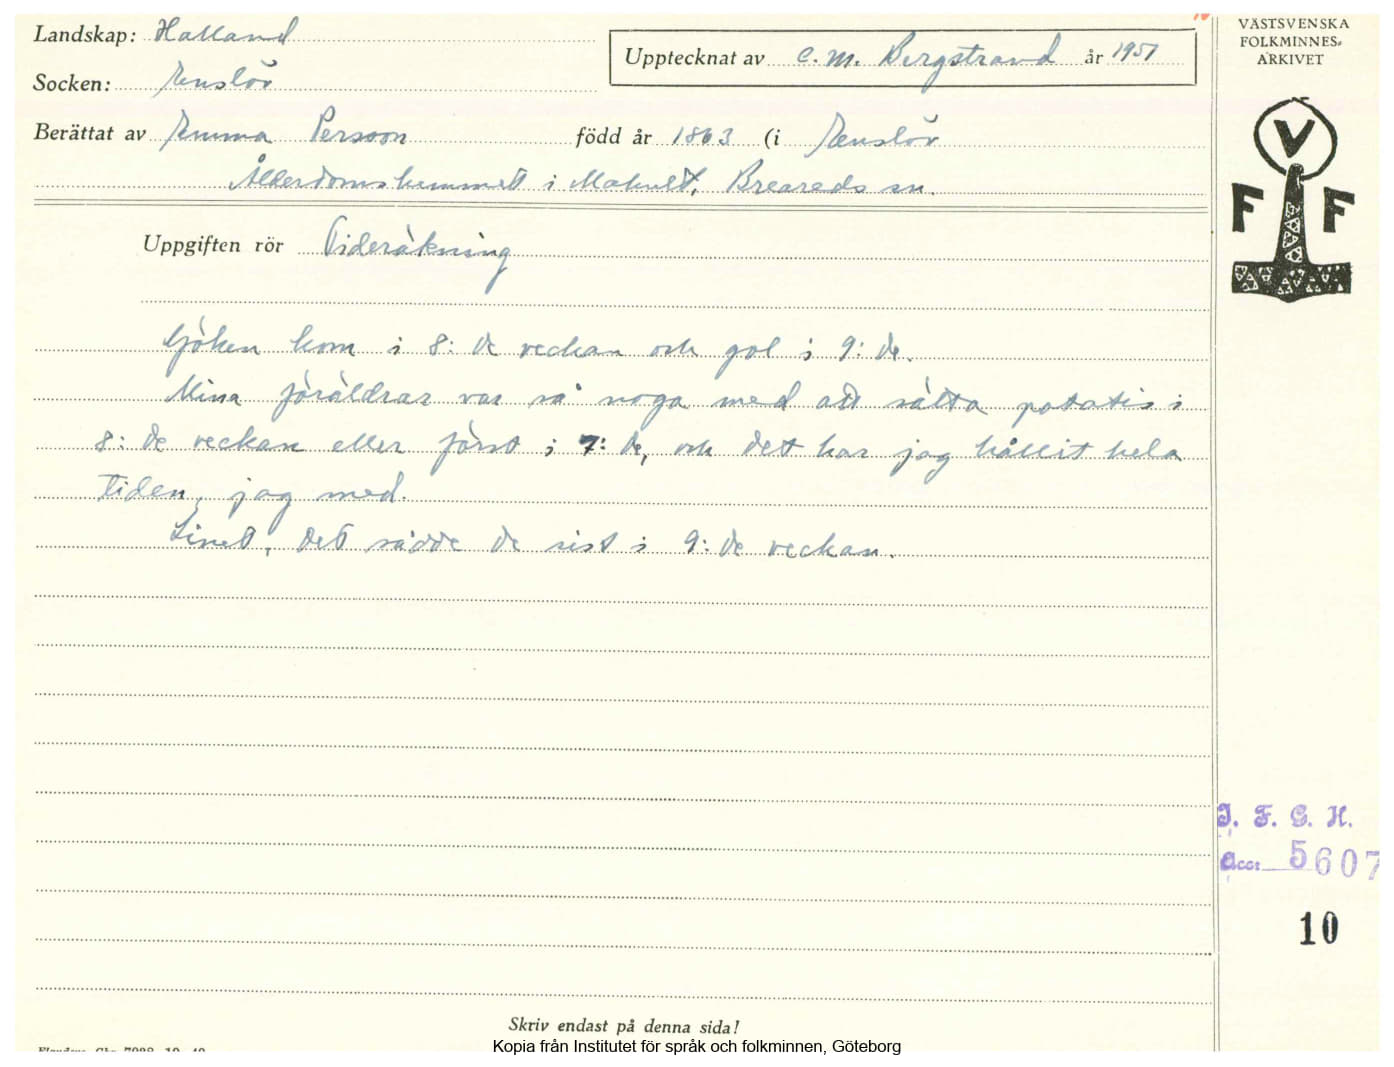 Landskap: Halland
Upptecknat av C. M. Bergstrand år 1951
Socken: Enslöv
Berättat av Emma Persson född år 1863 (i Enslöv
Ålderdomshemmet i Mahult, Breareds sn.
Uppgiften rör Tideräkning
Göken kom i 8:de veckan och gol i 9:de.
Mina föräldrar var så noga med att sätta potatis i
8:de veckan eller först i 7:de, och det har jag hållit hela
tiden, jag med.
Linet, det sådde de sist i 9:de veckan.
VÄSTSVENSKA
FOLKMINNES-
ARKIVET
V
F F
I. F. G. H.
Acc. 5607
10
Skriv endast på denna sida!
Kopia från Institutet för språk och folkminnen, Göteborg